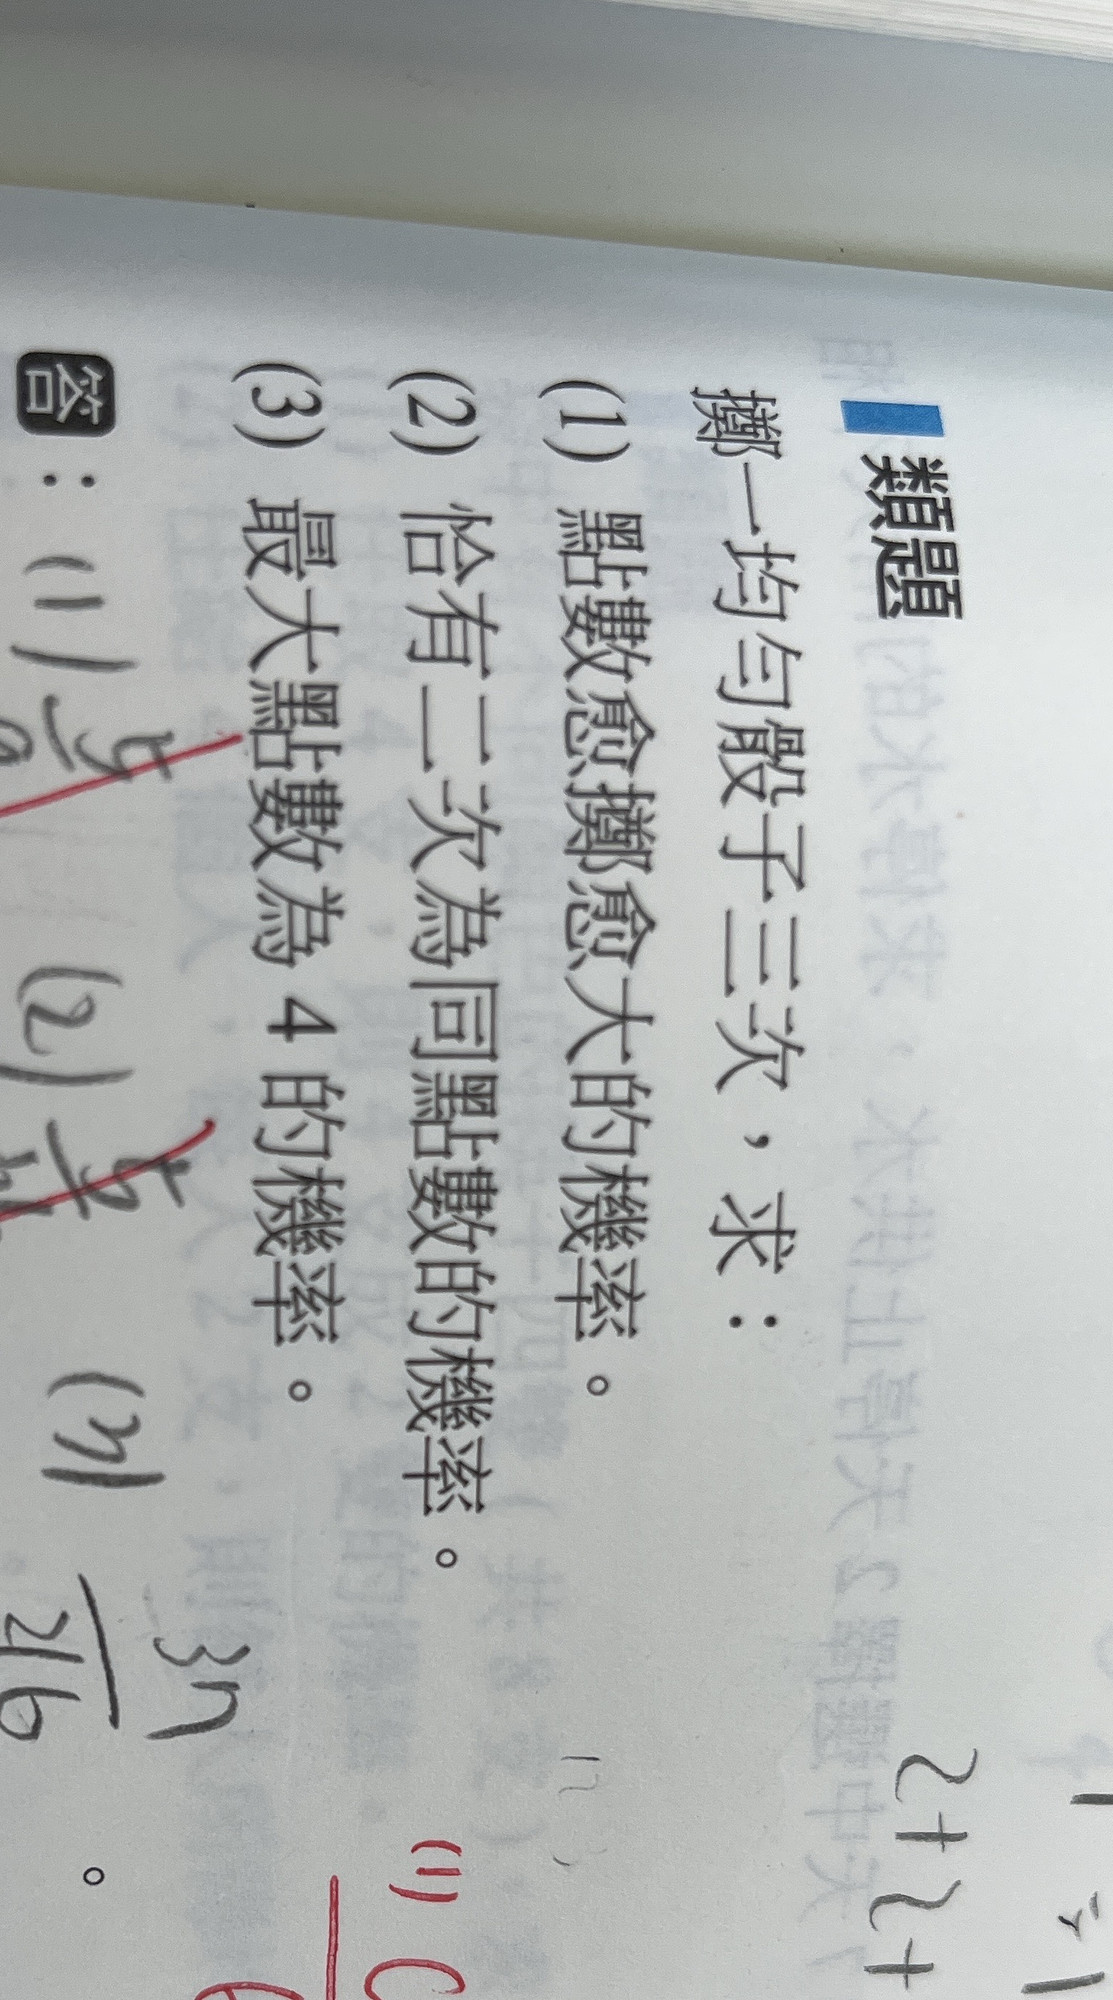 類題
擲一均勻骰子三次，求：
(1) 點數愈擲愈大的機率。
(2) 恰有二次為同點數的機率。
(3) 最大點數為 4 的機率。
答：(1) 5 (2) 5 (3) 37/216 。
2+2+
(1) C